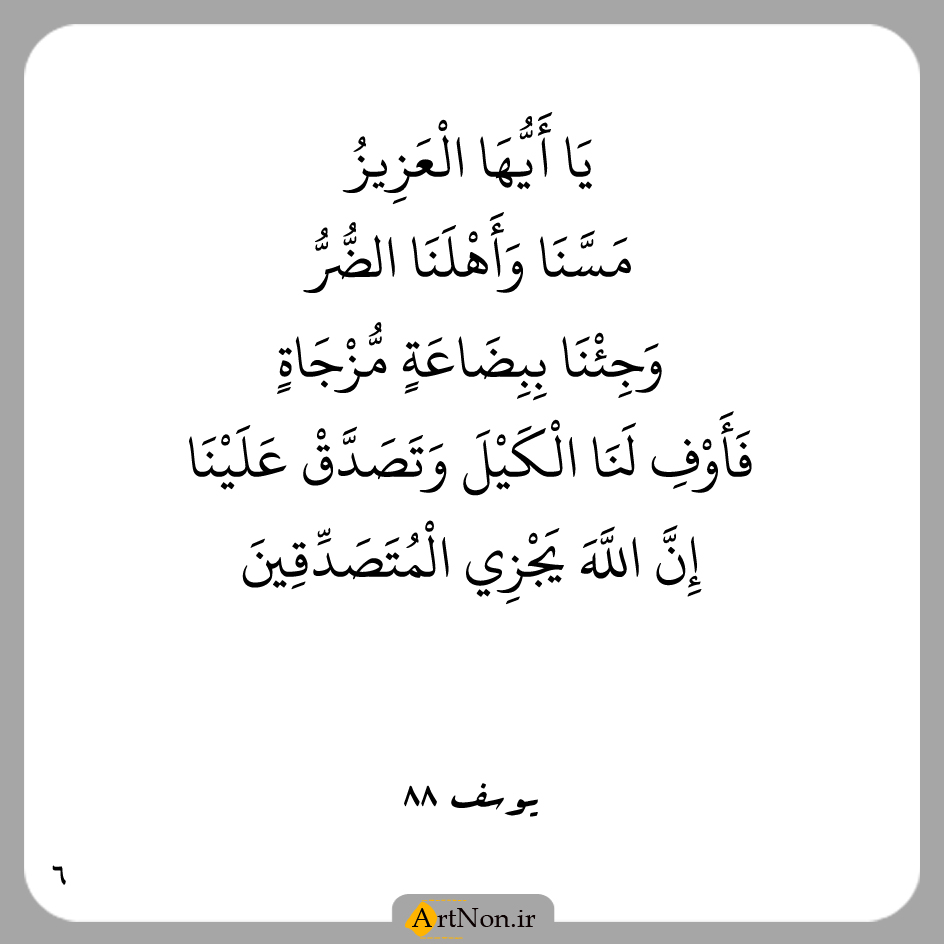 يَا أَيُّهَا الْعَزِيزُ
مَسَّنَا وَأَهْلَنَا الضُّرُّ
وَجِئْنَا بِبِضَاعَةٍ مُّزْجَاةٍ
فَأَوْفِ لَنَا الْكَيْلَ وَتَصَدَّقْ عَلَيْنَا
إِنَّ اللَّهَ يَجْزِي الْمُتَصَدِّقِينَ
يوسف ٨٨
٦
ArtNon.ir